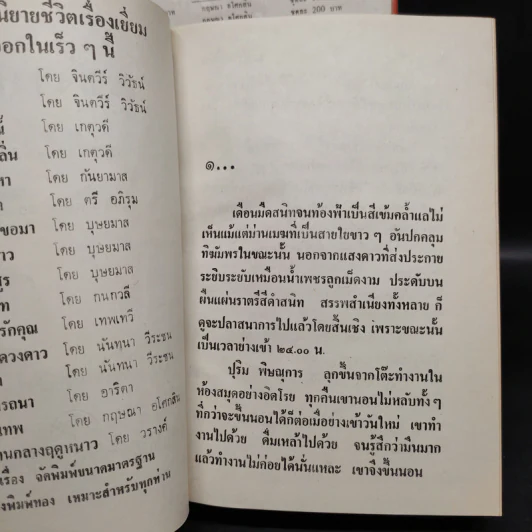 กฤษณา อโศกสิน
ชุดละ 200 บาท
นิยายชีวิตเรื่องเยี่ยม
ออกในเร็ว ๆ นี้
โดย จินตวีร์ วิวัธน์
โดย จินตวีร์ วิวัธน์
โดย เกตุวดี
โดย เกตุวดี
โดย กันยามาส
โดย ตรี อภิรุม
ขอมา โดย บุษยมาส
โดย บุษยมาส
โดย บุษยมาส
โดย กนกวลี
รักคุณ โดย เทพเทวี
ดวงดาว โดย นันทนา วีระชน
โดย นันทนา วีระชน
โดย อาริตา
เทพ โดย กฤษณา อโศกสิน
กลางฤดูหนาว โดย วรางค์
เรื่อง จัดพิมพ์ขนาดมาตรฐาน
เหมาะสำหรับทุกท่าน
๑...
เดือนมืดสนิทจนท้องฟ้าเป็นสีเข้มคล้ำแลไม่
เห็นแม้แต่ม่านเมฆที่เป็นสายใยขาว ๆ อันปกคลุม
ทิฆัมพรในขณะนั้น นอกจากแสงดาวที่ส่งประกาย
ระยิบระยับเหมือนน้ำเพชรลูกเม็ดงาม ประดับบน
ผืนแผ่นราตรีสีดำสนิท สรรพสำเนียงทั้งหลาย ก็
ดูจะปลาสนาการไปแล้วโดยสิ้นเชิง เพราะขณะนั้น
เป็นเวลาย่างเข้า ๒๔.๐๐ น.
ปุริม พิษณุการ ลุกขึ้นจากโต๊ะทำงานใน
ห้องสมุดอย่างอิดโรย ทุกคืนเขานอนไม่หลับทั้ง ๆ
ที่กว่าจะขึ้นนอนได้ก็ต่อเมื่อย่างเข้าวันใหม่ เขาทำ
งานไปด้วย ดื่มเหล้าไปด้วย จนรู้สึกว่ามึนมาก
แล้วทำงานไม่ค่อยได้นั่นแหละ เขาจึงขึ้นนอน